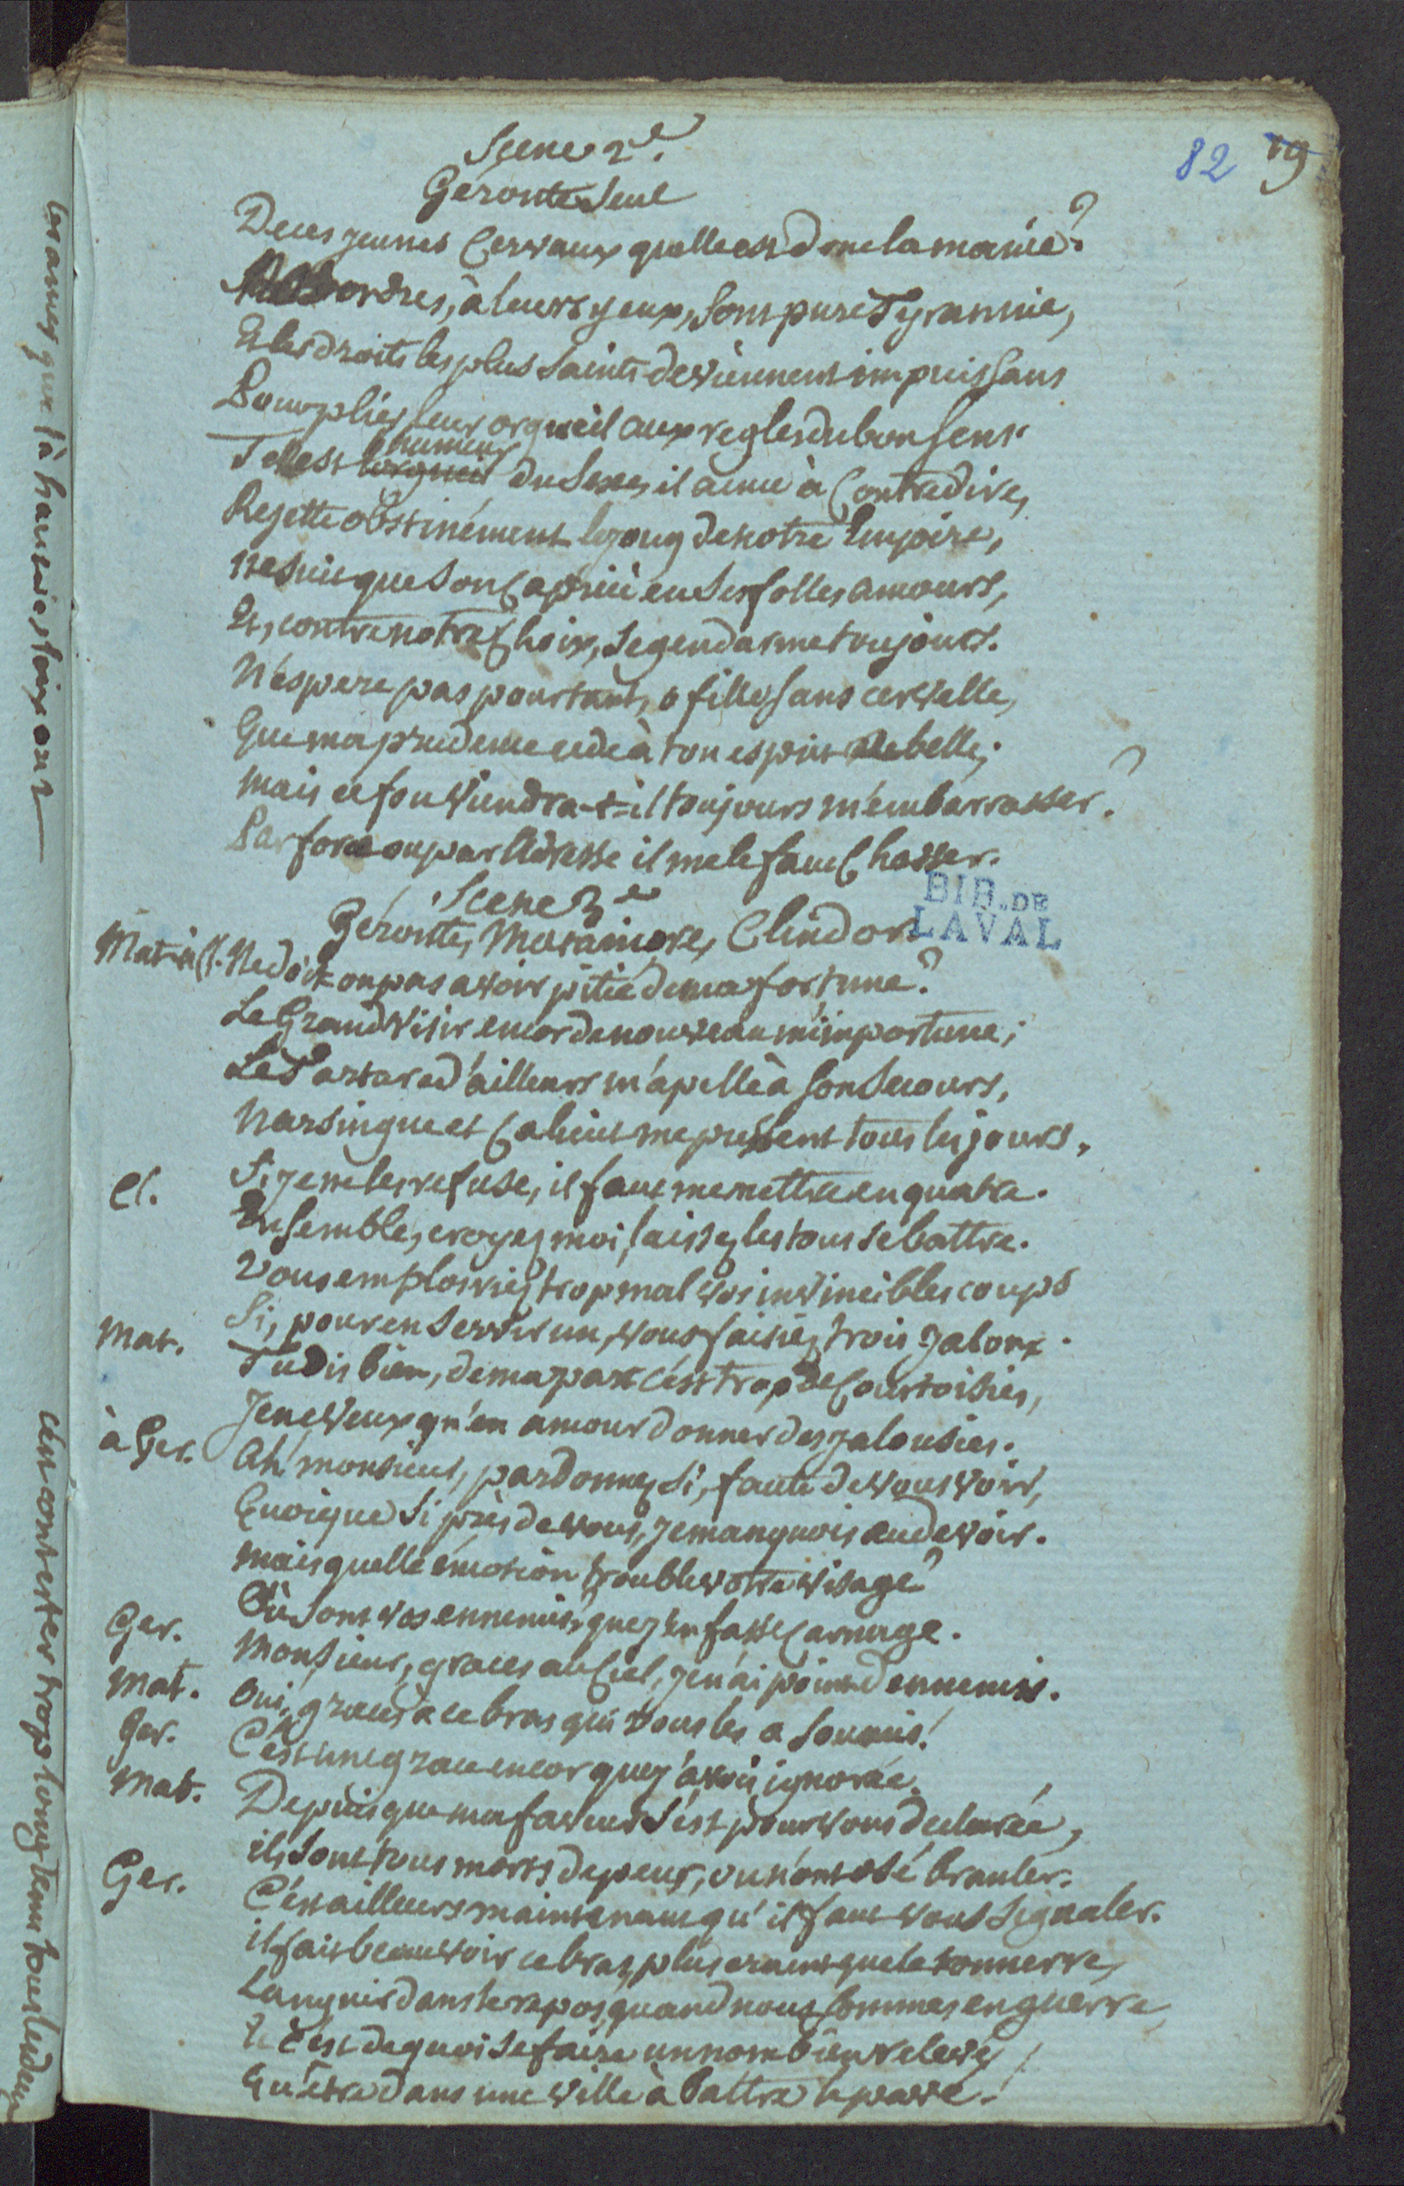 82 19
Scene 2e.
Géronte Seul
De ces jeunes Cerveaux quelle est donc la manie?
ordres, à leurs yeux, Sont pure Tyrannie,
Et les droits les plus Saints deviennent impuissans
Pour plier leur orgueil aux regles du bon Sens.
Tel est l'orgueil humeur du Sexe, il aime à Contredire,
Rejette obstinément le joug de notre Empire,
Ne Suit que Son Caprice en Ses folles amours,
Et, contre notre Choix, Se gendarme toujours.
N'espere pas pourtant, o fille Sans cervelle,
Que ma prudence cede à ton esprit Rebelle;
mais ce fou viendra-t-il toujours m'embarrasser?
Par force ou par Adresse il me le faut Chasser.
Scene 3e
Géronte, Matamore, Clindor
BIB. DE LAVAL
Mat. à Cl. Ne doit on pas avoir pitié de ma fortune?
Le Grand Visir encor de nouveau m'importune;
Le Tartare d'ailleurs m'apelle à Son Secours,
Narsingue et Calicut me pressent tous les jours,
Si je ne les refuse, il faut me mettre en quatre.
Cl. Ensemble, croyez moi, laissez les tous Se battre.
Vous emploiriez trop mal vos invincibles coups
Si, pour en Servir un, vous faisiez trois Jaloux.
Mat. Tu dis bien, de ma part c'est trop de Courtoisies,
Je ne veux qu'en amour donner des jalousies.
à Ger. Ah! monsieur, pardonnez Si, faute de vous voir,
Quoique Si près de vous, je manquois au devoir.
mais quelle émotion trouble votre visage?
Où Sont vos ennemis, que j'en fasse Carnage.
Ger. Monsieur, graces au Ciel, je n'ai point d'ennemis.
Mat. Oui, graces à ce bras qui vous les a Soumis!
Ger. C'est une grace encor que j'avois ignorée.
Mat. Depuis que ma faveur S'est pour vous declarée,
ils Sont tous morts de peur, ou n'ont osé branler.
Ger. C'est ailleurs maintenant qu'il faut vous Signaler.
il fait beau voir ce bras, plus craint que le tonnerre,
Languir dans le repos, quand nous Sommes en guerre,
Et c'est de quoi Se faire un nom bien relevé,
Qu'être dans une ville à Battre le pavé!